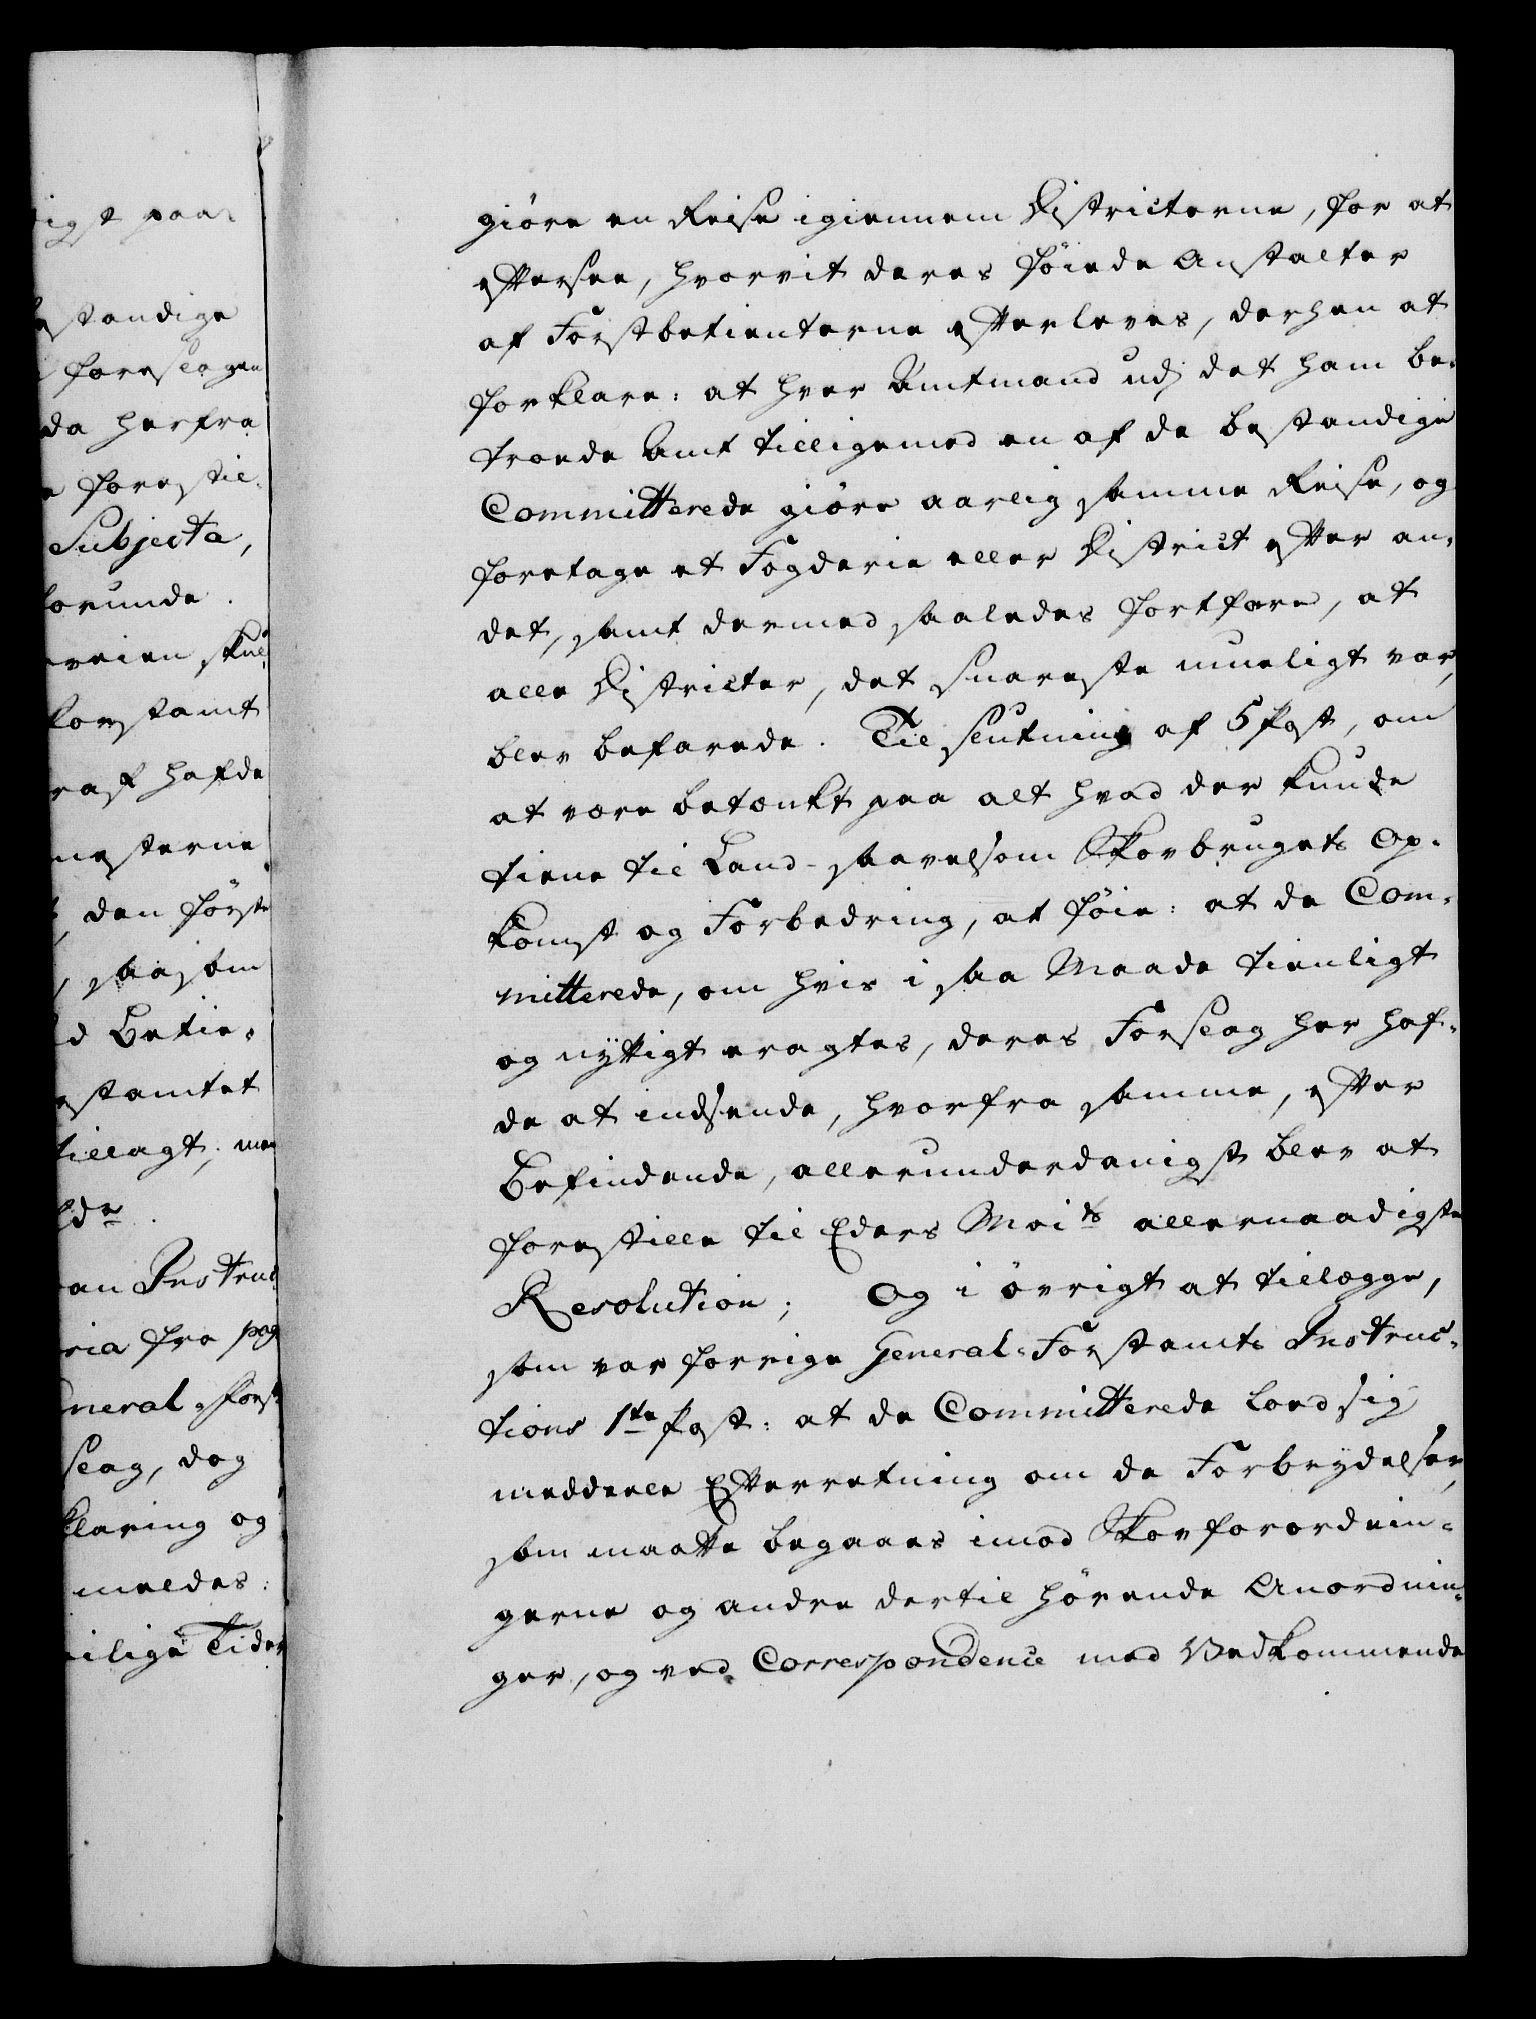 igst paa
standige
foreslagen
da herfra
forestil-
Subjecta,
forunde.
veien skul-
Forstamt
raf hafde
mesterne
den første
saasom
d Betie-
stamtet
tillagt; men
an Instruc-
ria fra pag
neral-Forst-
slag, dog
klaring og
meldes:
ilige Tider
giøre en Reise igiennem Districterne, for at
eftersee, hvorvit deres føiede Anstalter
af Forstbetienterne efterleves, derhen at
forklare: at hver Amtmand udj det ham be-
troede Amt tilligemed en af de bestandige
Committerede giøre aarlig samme Reise, og
foretage et Fogderie eller District efter an-
det, samt dermed saaledes fortfare, at
alle Districter, det snareste mueligt var,
blev befarede. Til slutning af 5 Post, om
at være betænkt paa alt hvad der kunde
tiene til Land- saavelsom Skovbrugets Op-
komst og Forbedring, at føie: at de Com-
mitterede, om hvis i saa Maade tienligt
og nyttigt eragtes, deres Forslag her haf-
de at indsende, hvorfra samme, efter
Befindende, allerunderdanigst blev at
forestille til Eders Maits allernaadigste
Resolution; Og i øvrigt at tillægge,
som var forrige General-Forstamts Instruc-
tions 1te Post: at de Committerede lod sig
meddeele Efterretning om de Forbrydelser,
som maatte begaaes imod Skovforordnin-
gerne og andre dertil hørende Anordnin-
ger, og ved Correspondence med Vedkommende